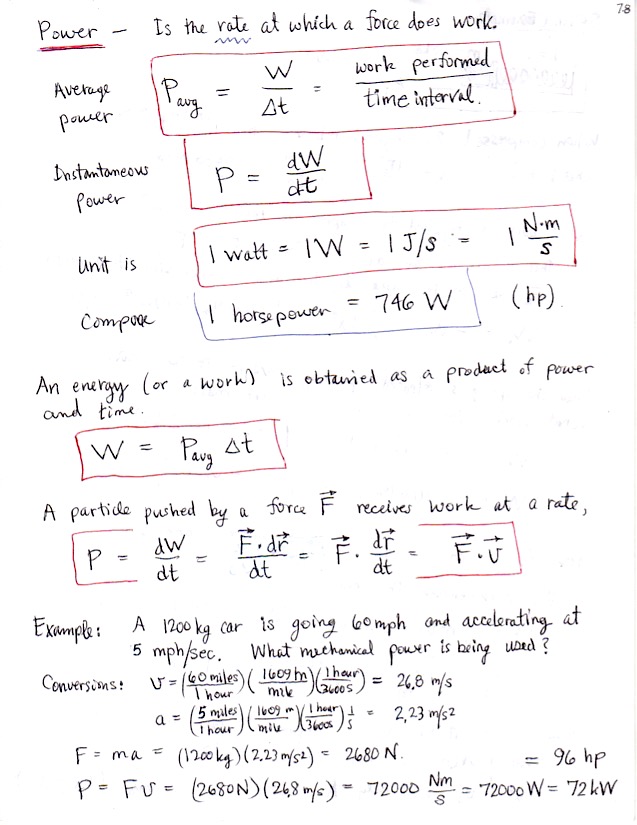 78
Power – Is the rate at which a force does work.
Average power P_avg = W/Δt = work performed/time interval.
Instantaneous Power P = dW/dt
Unit is 1 watt = 1W = 1 J/s = 1 N·m/s
Compare 1 horsepower = 746 W (hp).
An energy (or a work) is obtained as a product of power
and time.
W = P_avg Δt
A particle pushed by a force F⃗ receives work at a rate,
P = dW/dt = F⃗·dr⃗/dt = F⃗·dr⃗/dt = F⃗·v⃗
Example: A 1200 kg car is going 60 mph and accelerating at
5 mph/sec. What mechanical power is being used?
Conversions: v = (60 miles/1 hour)(1609 m/mile)(1 hour/3600 s) = 26.8 m/s
a = (5 miles/1 hour)(1609 m/mile)(1 hour/3600s) 1/s = 2.23 m/s²
F = ma = (1200 kg)(2.23 m/s²) = 2680 N.
= 96 hp
P = Fv = (2680N)(26.8 m/s) = 72000 Nm/s = 72000W = 72 kW